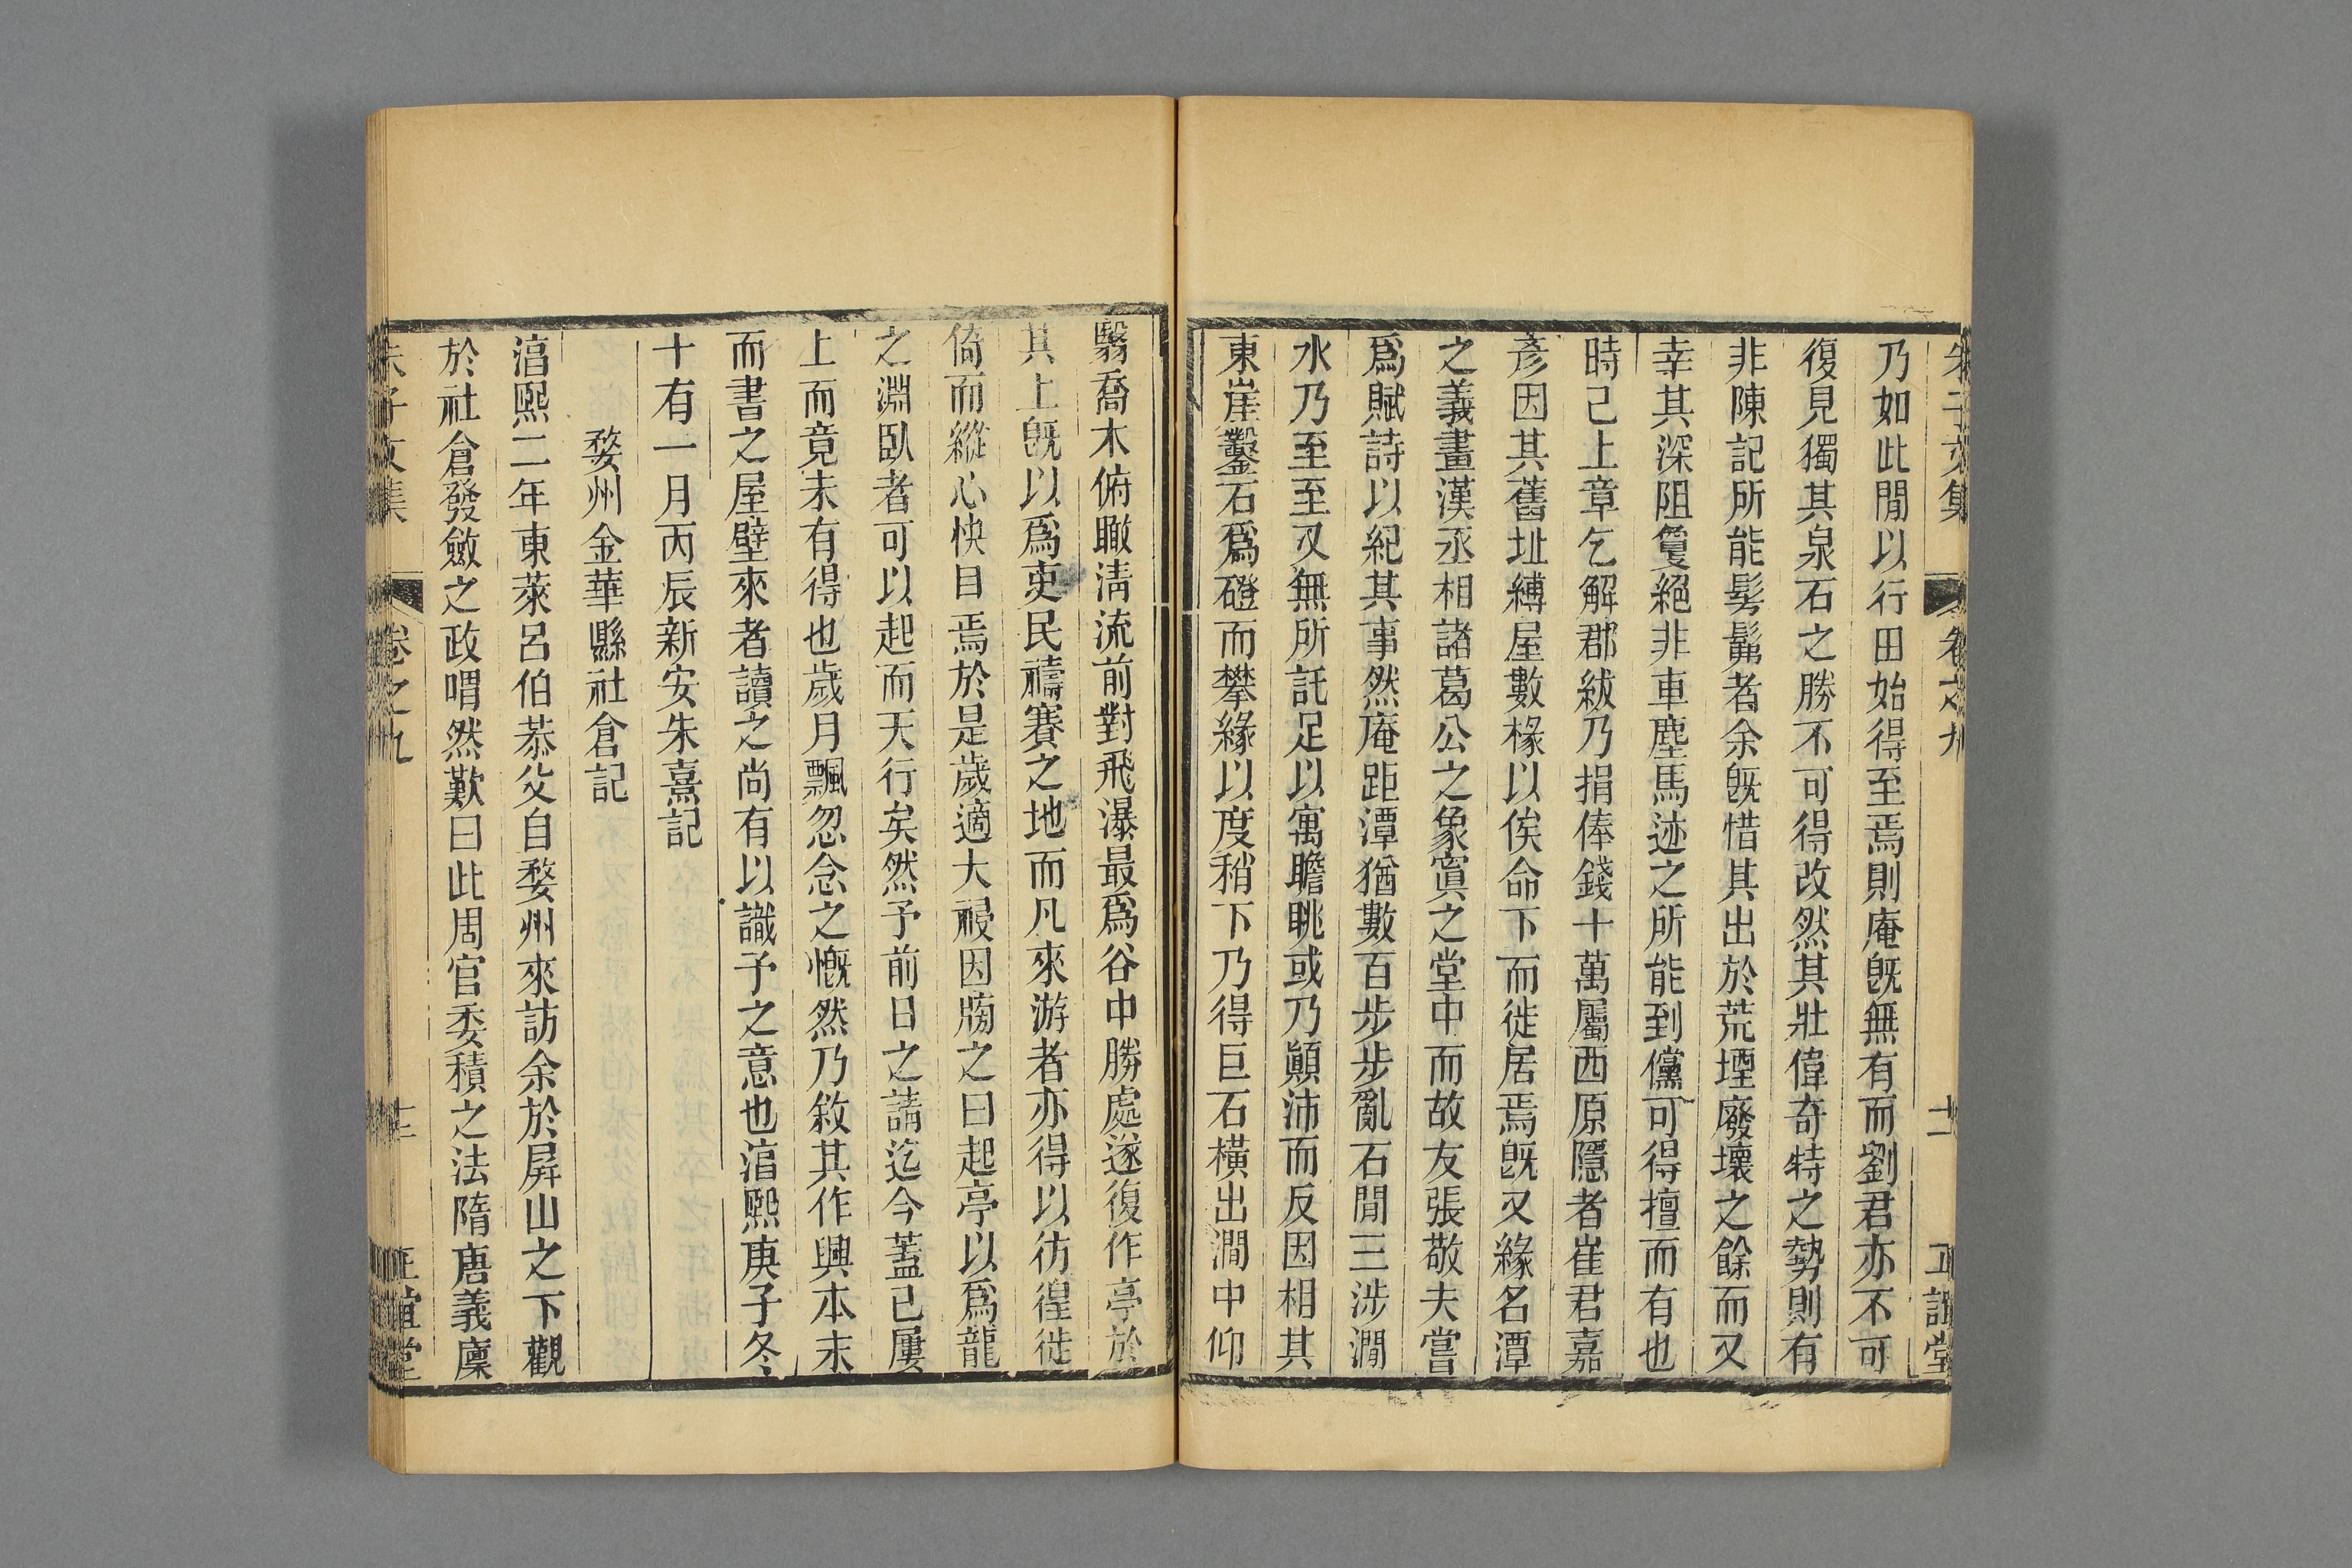 朱子文集 卷之九 十二 正誼堂
乃如此閒以行田始得至焉則庵旣無有而劉君亦不可
復見獨其泉石之勝不可得改然其壯偉奇特之勢則有
非陳記所能髣髴者余旣惜其出於荒堙廢壞之餘而又
幸其深阻敻絕非車塵馬迹之所能到儻可得擅而有也
時已上章乞解郡紱乃捐俸錢十萬屬西原隱者崔君嘉
彥因其舊址縛屋數椽以俟命下而徙居焉旣又緣名潭
之義畫漢丞相諸葛公之象寘之堂中而故友張敬夫嘗
爲賦詩以紀其事然庵距潭猶數百步步亂石閒三涉澗
水乃至至又無所託足以寓瞻眺或乃顚沛而反因相其
東崖鑿石爲磴而攀緣以度稍下乃得巨石橫出澗中仰
翳喬木俯瞰淸流前對飛瀑最爲谷中勝處遂復作亭於
其上旣以爲吏民禱賽之地而凡來游者亦得以彷徨徙
倚而縱心快目焉於是歲適大祲因牓之曰起亭以爲龍
之淵臥者可以起而天行矣然予前日之請迄今蓋已屢
上而竟未有得也歲月飄忽念之慨然乃敘其作興本末
而書之屋壁來者讀之尚有以識予之意也淳熙庚子冬
十有一月丙辰新安朱熹記
婺州金華縣社倉記
淳熙二年東萊呂伯恭父自婺州來訪余於屏山之下觀
於社倉發斂之政喟然歎曰此周官委積之法隋唐義廩
朱子文集 卷之九 十二 正誼堂